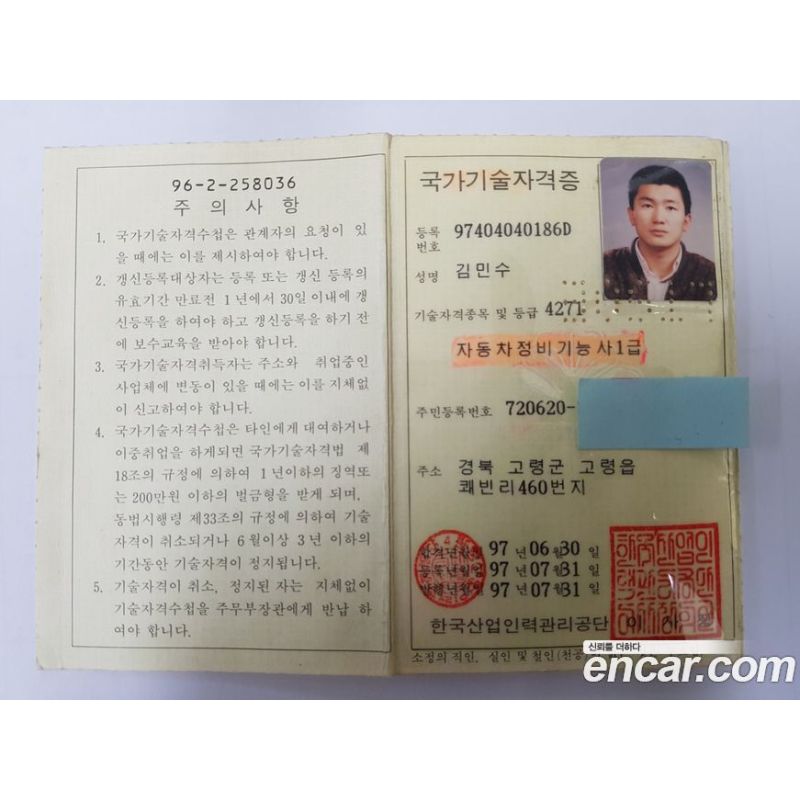 96-2-258036
주 의 사 항
1. 국가기술자격수첩은 관계자의 요청이 있
을 때에는 이를 제시하여야 합니다.
2. 갱신등록대상자는 등록 또는 갱신 등록의
유효기간 만료전 1년에서 30일 이내에 갱
신등록을 하여야 하고 갱신등록을 하기 전
에 보수교육을 받아야 합니다.
3. 국가기술자격취득자는 주소와 취업중인
사업체에 변동이 있을 때에는 이를 지체없
이 신고하여야 합니다.
4. 국가기술자격수첩은 타인에게 대여하거나
이중취업을 하게되면 국가기술자격법 제
18조의 규정에 의하여 1년이하의 징역또
는 200만원 이하의 벌금형을 받게 되며,
동법시행령 제33조의 규정에 의하여 기술
자격이 취소되거나 6월이상 3년 이하의
기간동안 기술자격이 정지됩니다.
5. 기술자격이 취소, 정지된 자는 지체없이
기술자격수첩을 주무부장관에게 반납 하
여야 합니다.
국가기술자격증
등록번호 97404040186D
성명 김민수
기술자격종목 및 등급 4271
자동차정비기능사1급
주민등록번호 720620-
주소 경북 고령군 고령읍
쾌빈리460번지
합격년월일 97 년 06 월 30 일
등록년월일 97 년 07 월 31 일
발행년월일 97 년 07 월 31 일
한국산업인력관리공단 이사장
소정의 직인, 실인 및 철인(천공)
신뢰를 더하다
encar.com